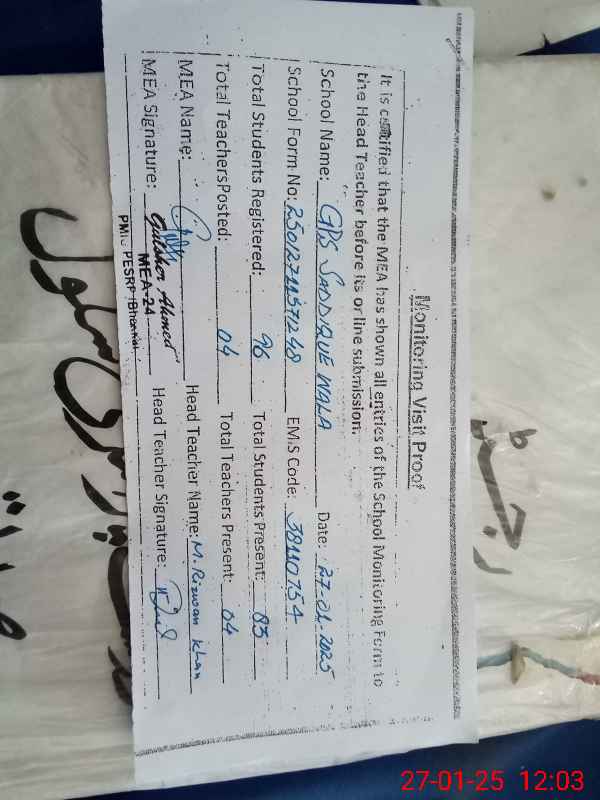 Monitoring Visit Proof
It is certified that the MEA has shown all entries of the School Monitoring Form to
the Head Teacher before its or line submission.
School Name: GPS SADDIQUE WALA Date: 27.01.2025
School Form No: EMIS Code: 38110754
Total Students Registered: 96 Total Students Present: 83
Total TeachersPosted: 04 Total Teachers Present: 04
MEA Name: Head Teacher Name: M. Rizwan Khan
MEA Signature: Gulsher Ahmed Head Teacher Signature:
MEA-24
PESRP
رجسٹر
سکول
27-01-25 12:03